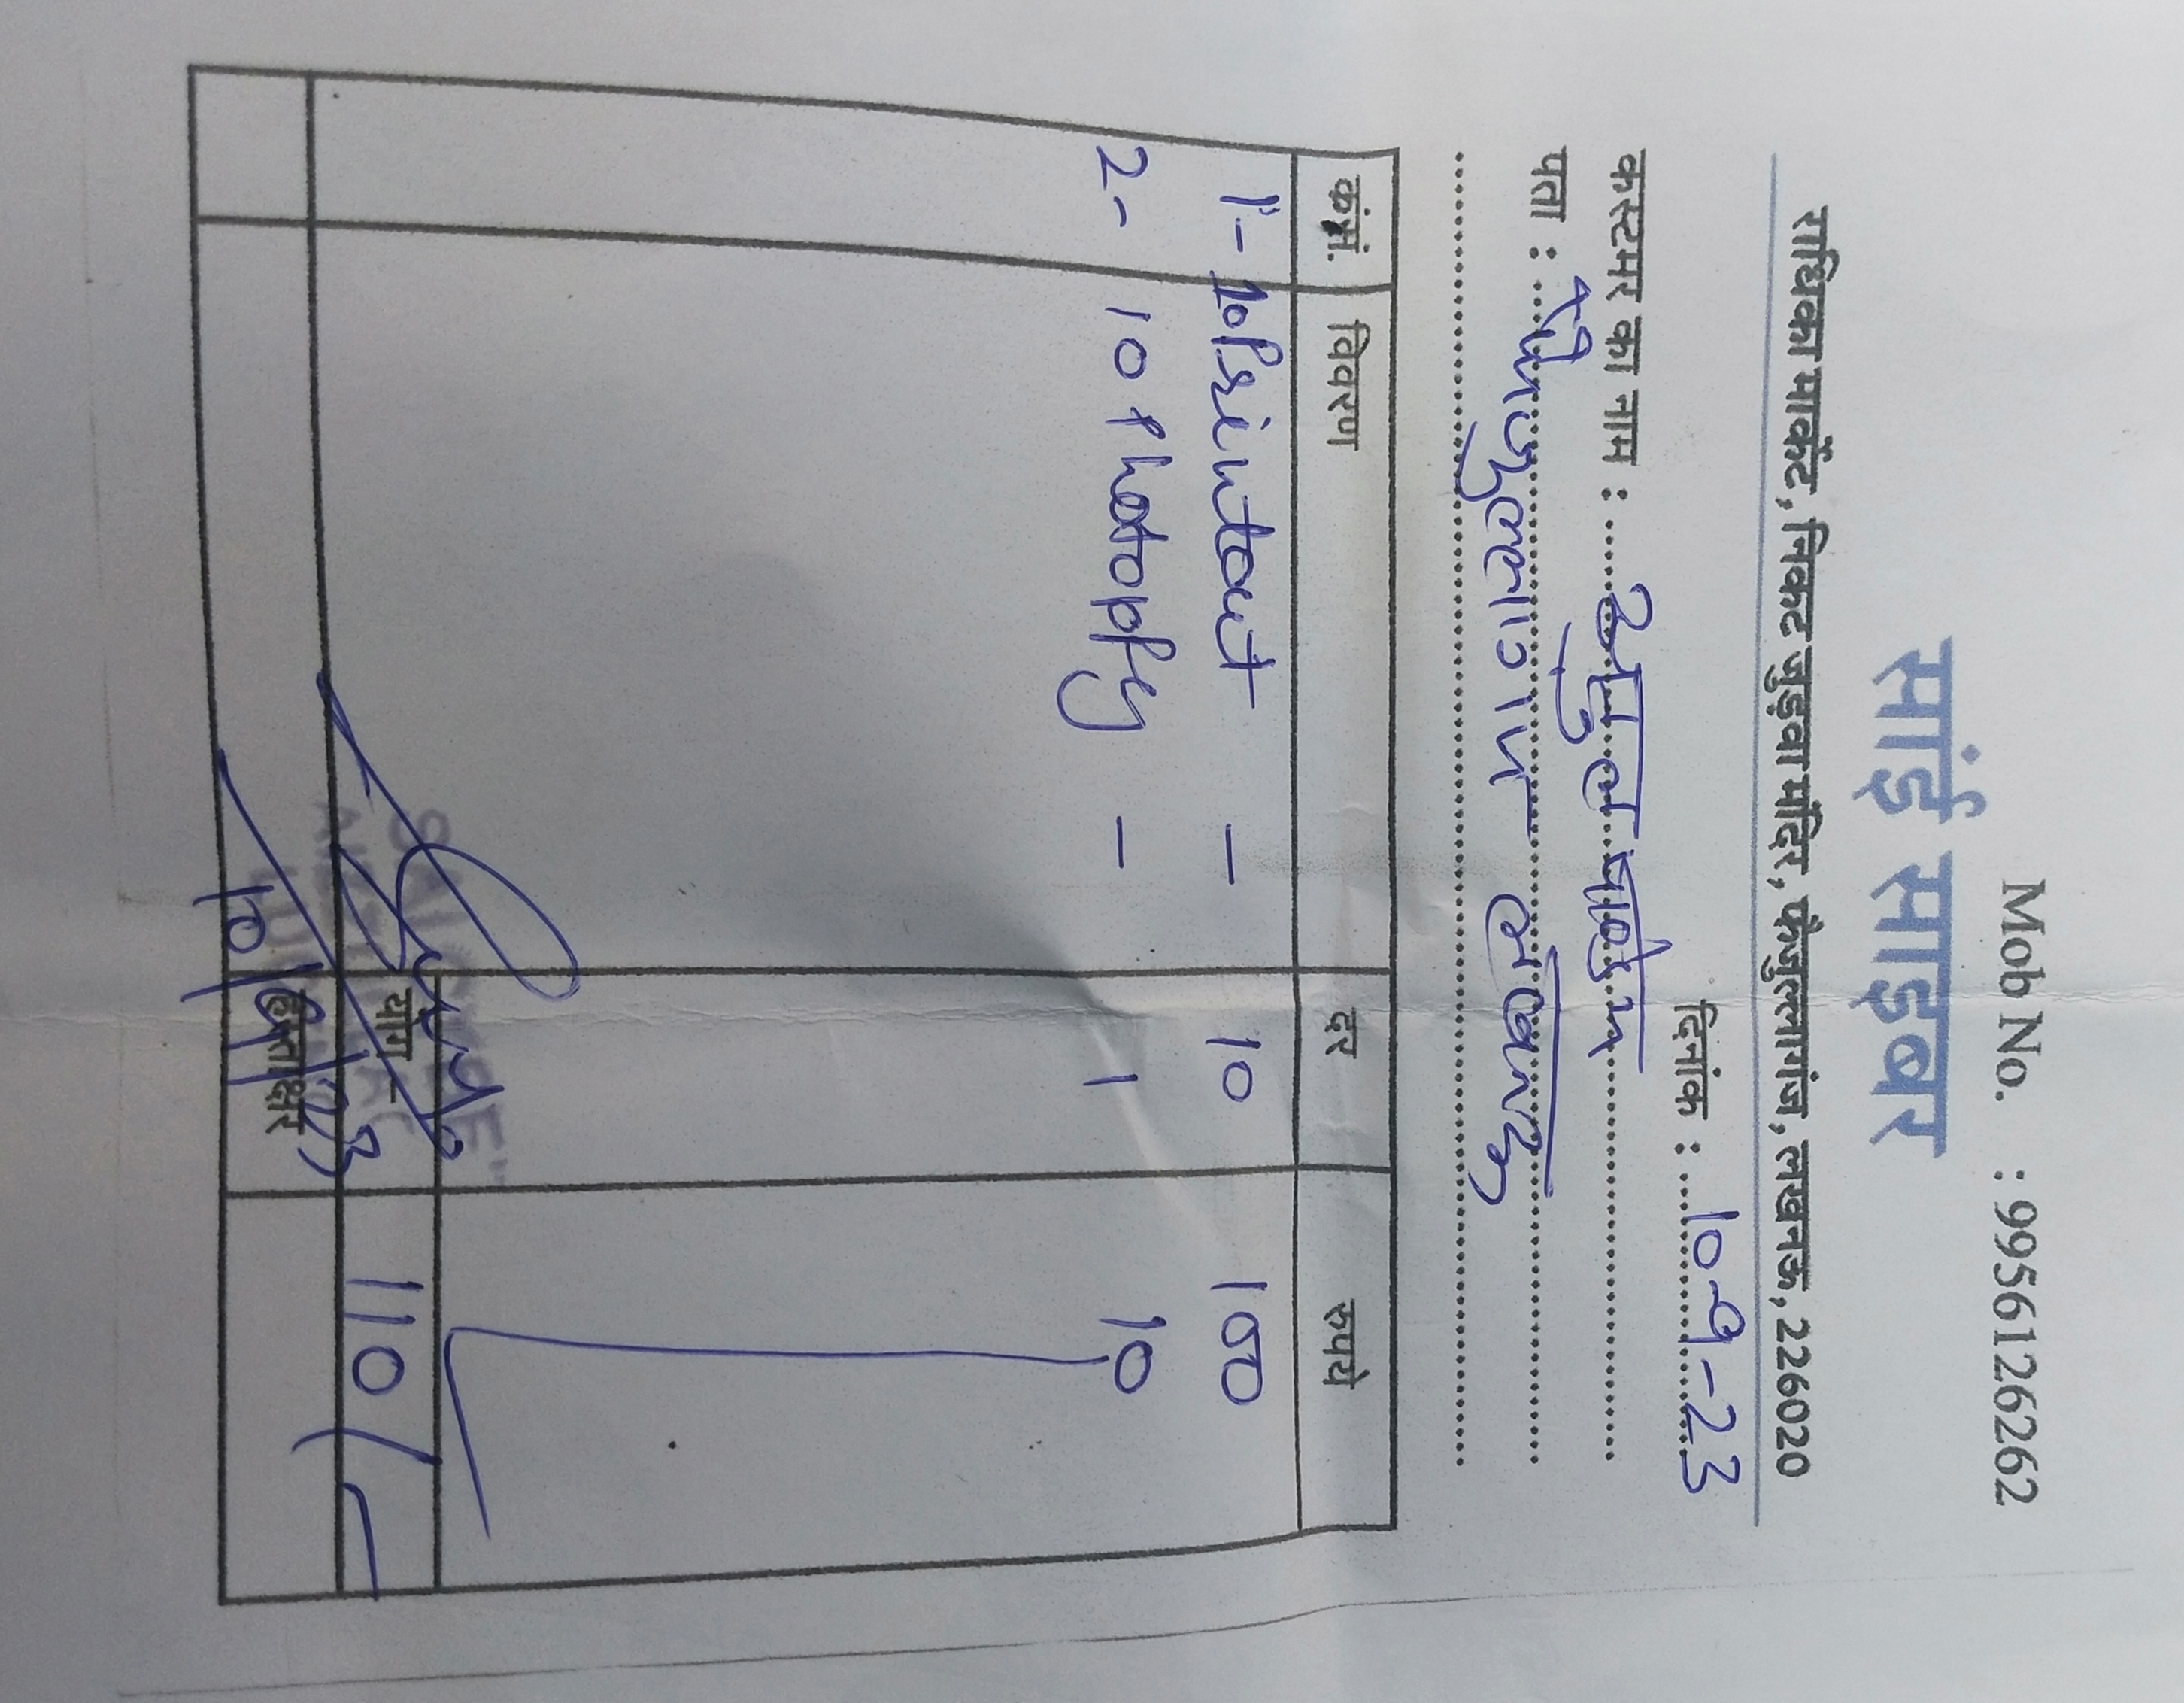 Mob No. : 9956126262
सांई साइबर
राधिका मार्केट, निकट जुड़वा मंदिर, फैजुल्लागंज, लखनऊ, 226020
दिनांक : 10-9-23
कस्टमर का नाम :
पता : लखनऊ
कं.सं. विवरण दर रुपये
1- 10 Printout - 10 100
2- 10 Photopfy - 1 10
योग - 110/-
हस्ताक्षर
10/9/23